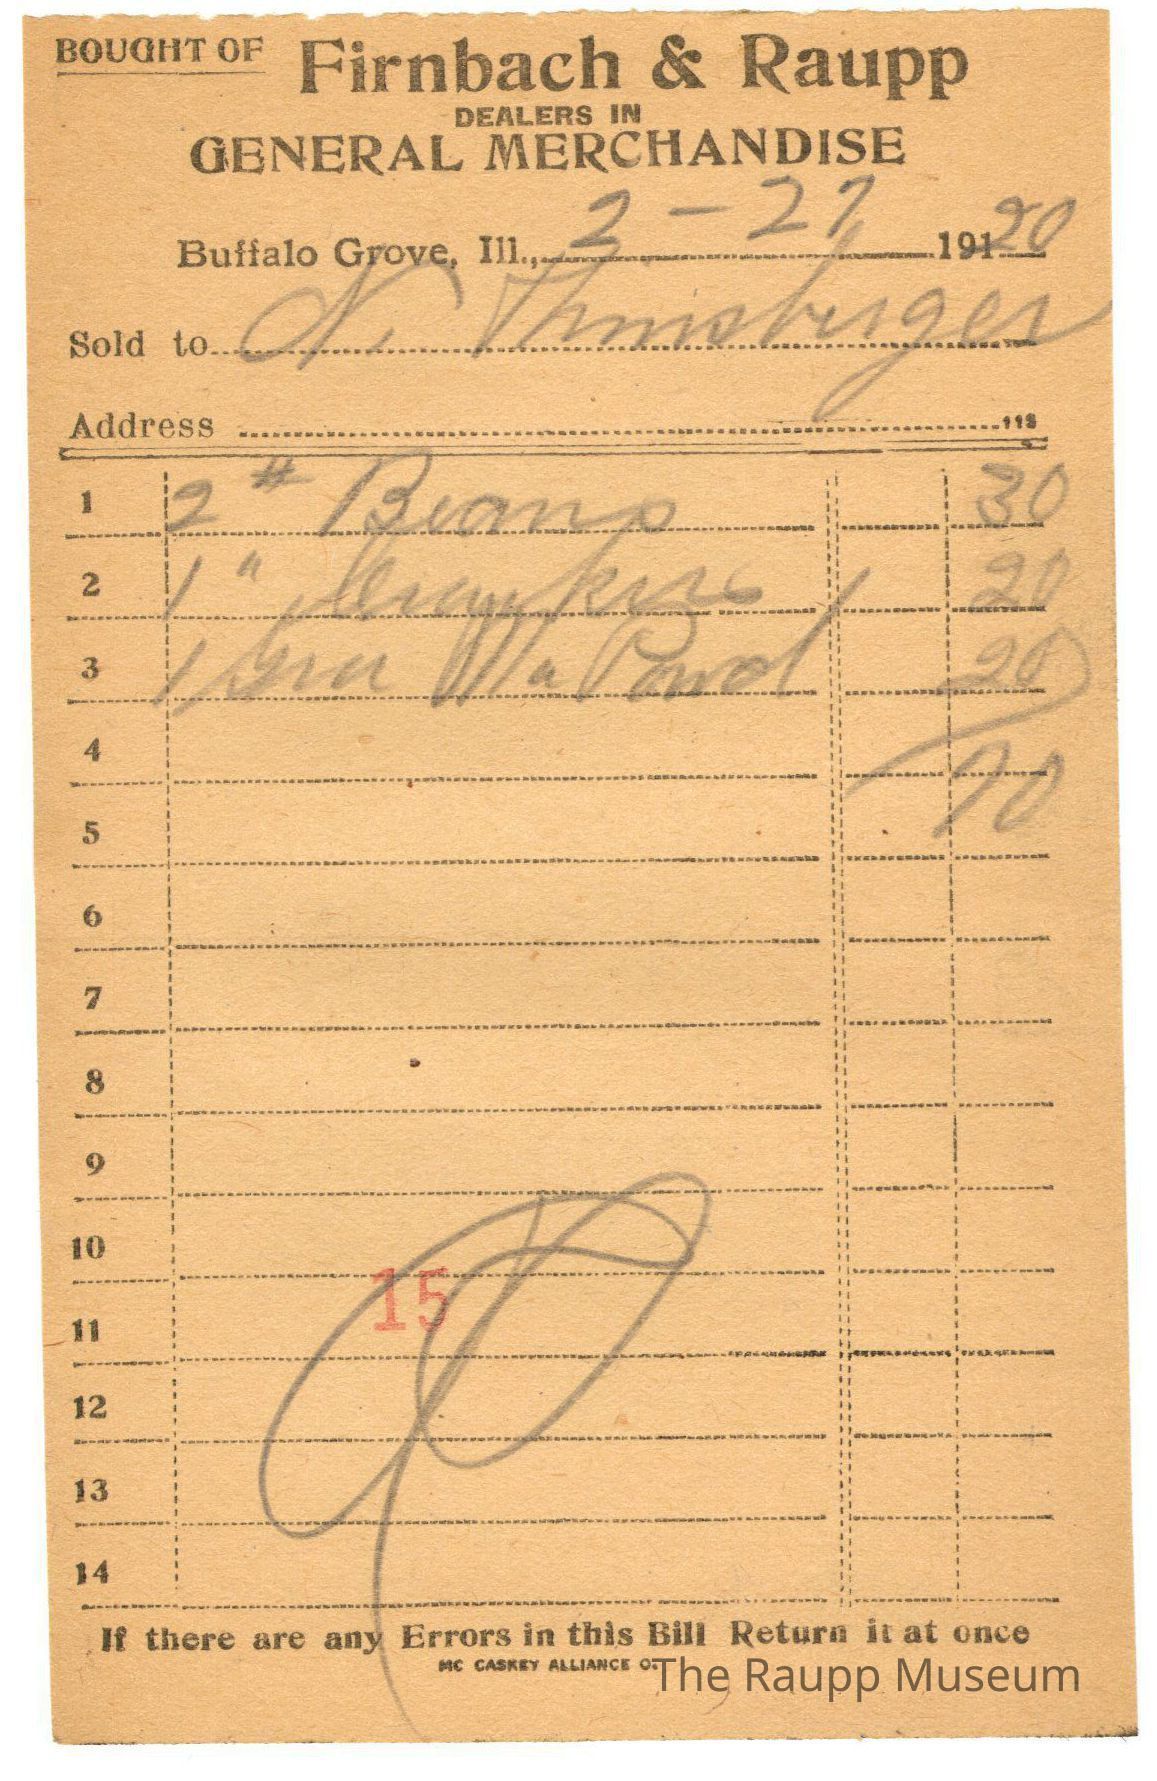 BOUGHT OF Firnbach & Raupp
DEALERS IN
GENERAL MERCHANDISE
Buffalo Grove, Ill., 2-27 191 20
Sold to N.
Address 118
1 2 # Beans 30
2 1 " 20
3 1 Wa Powd 20
4 70
5
6
7
8
9
10
15
11
12
13
14
If there are any Errors in this Bill Return it at once
MC CASKEY ALLIANCE O.
The Raupp Museum